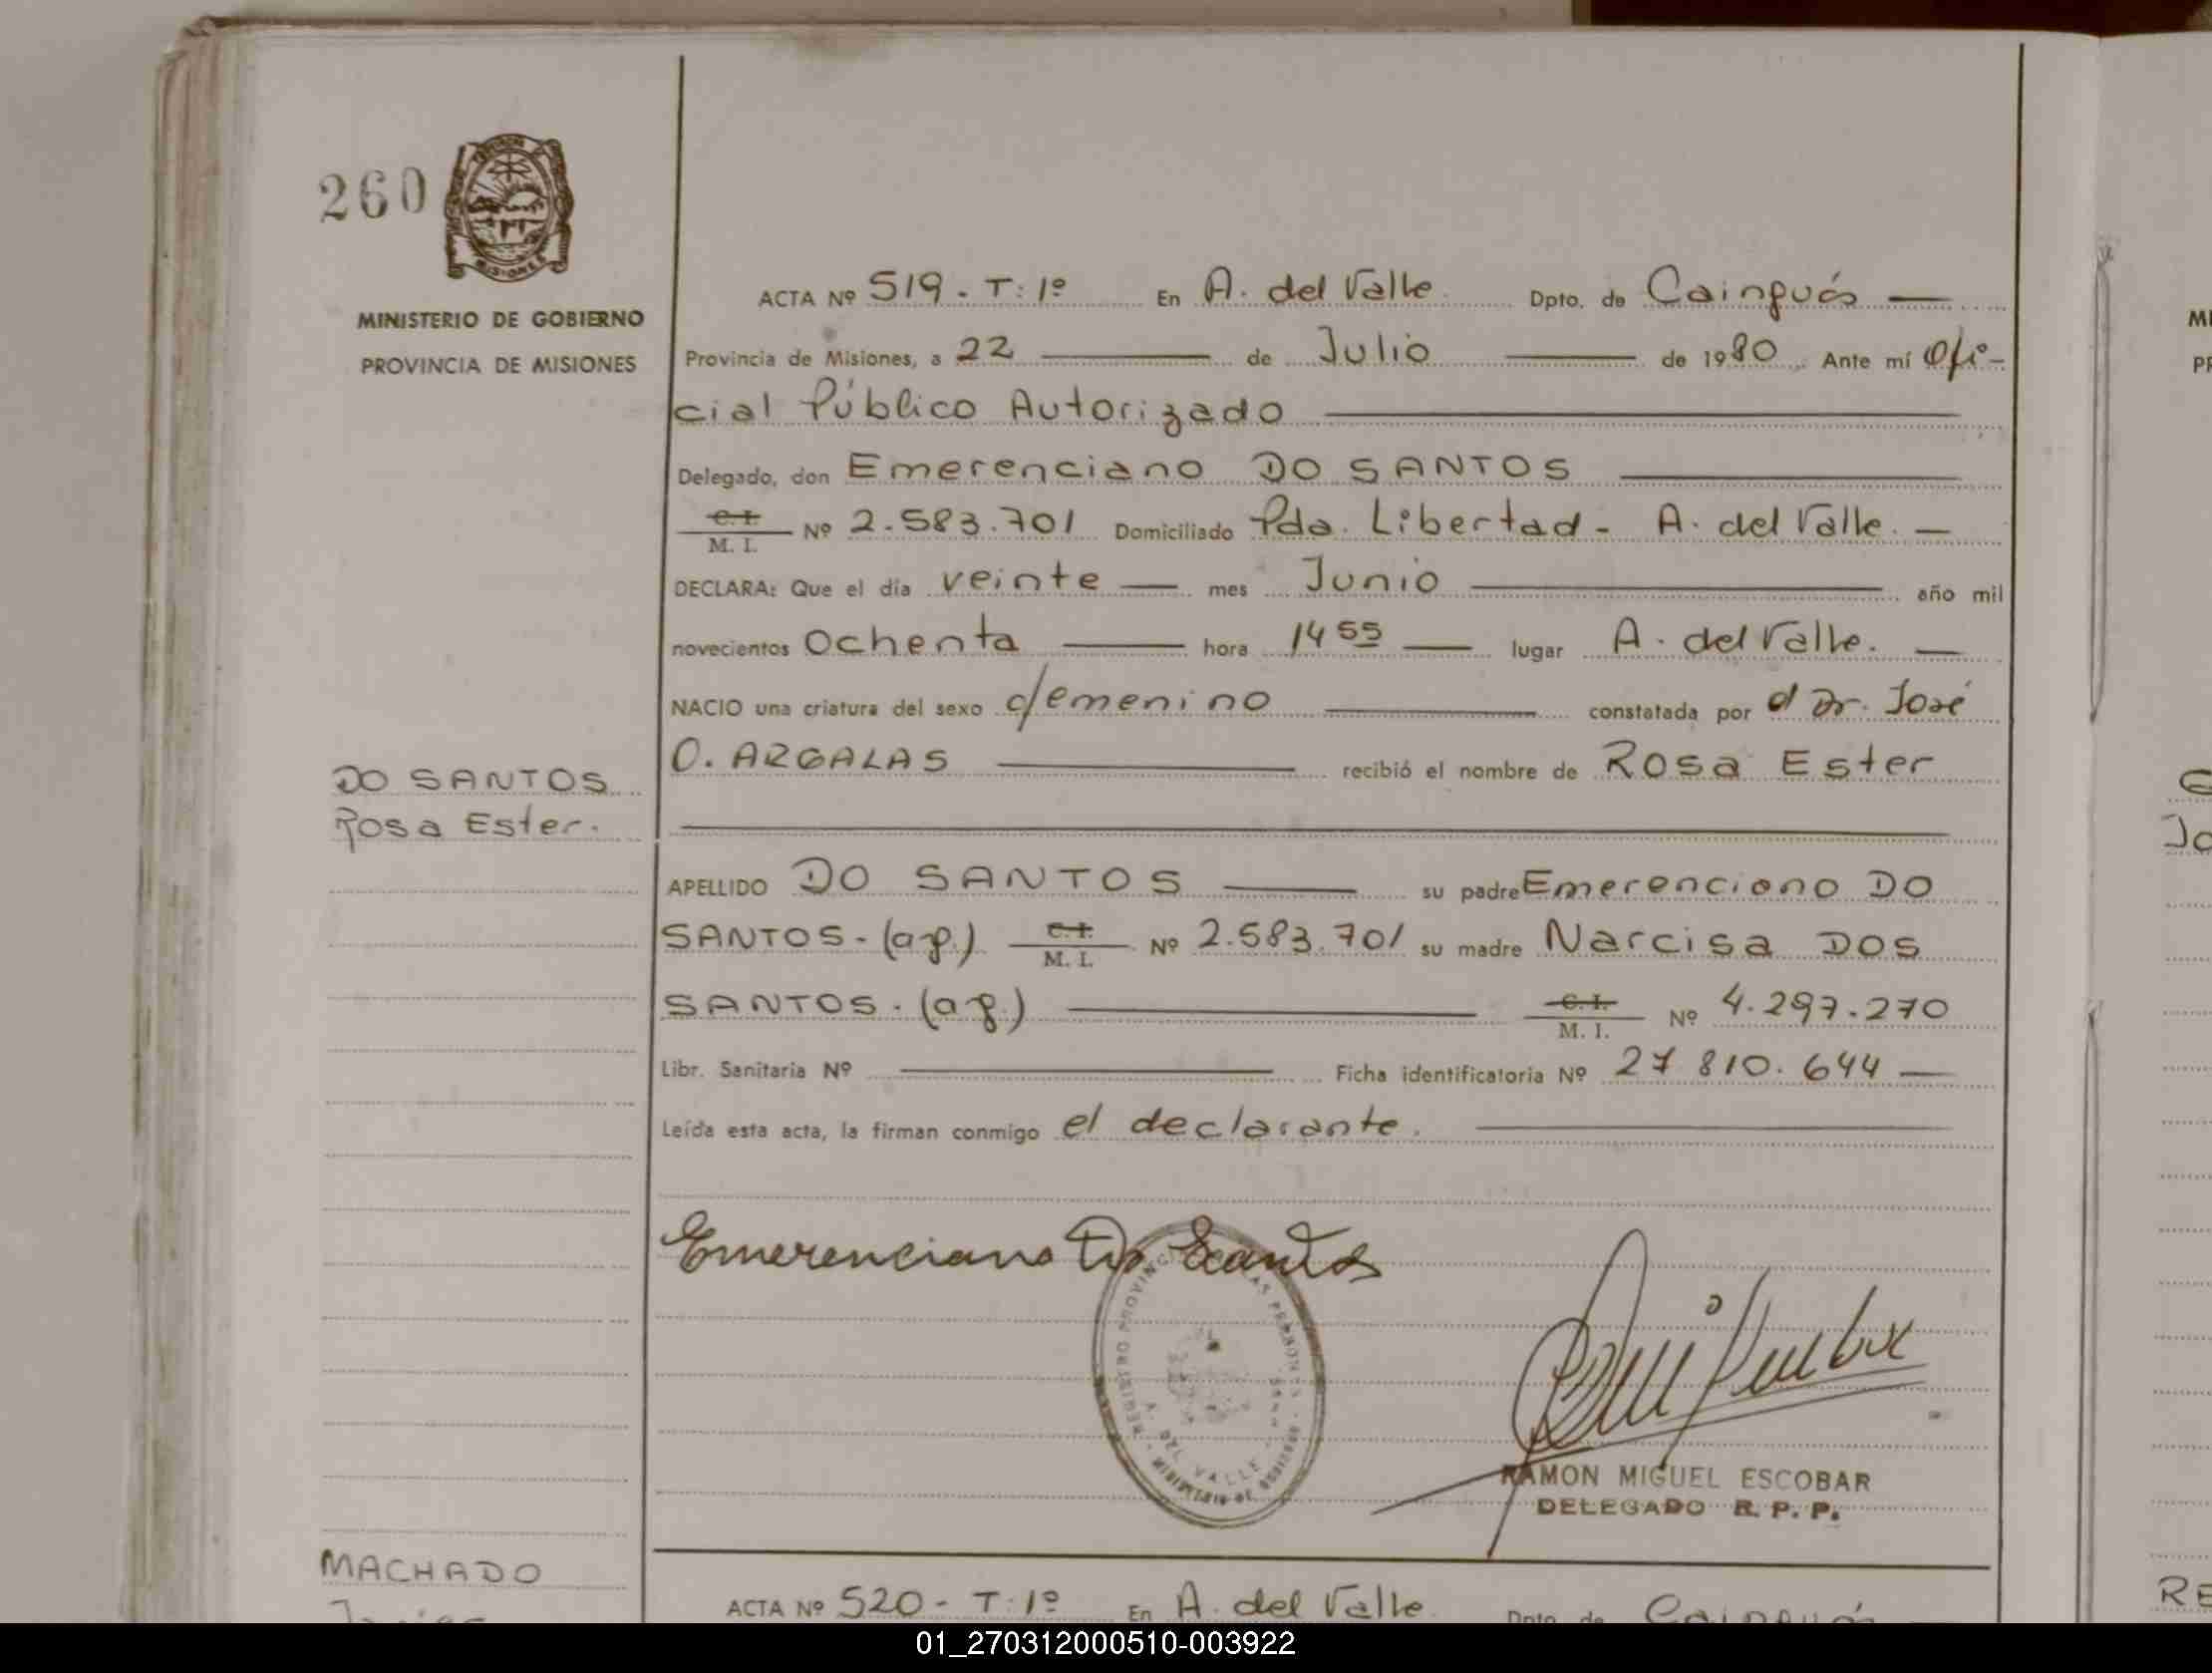 260
MISIONES
MINISTERIO DE GOBIERNO
PROVINCIA DE MISIONES
ACTA Nº 519 - T: 1º En A. del Valle. Dpto. de Cainguás —
Provincia de Misiones, a 22 — de Julio — de 1980 Ante mí Ofi-
cial Público Autorizado —
Delegado, don Emerenciano DO SANTOS —
C. I. M. I. Nº 2.583.701 Domiciliado Pda. Libertad - A. del Valle. —
DECLARA: Que el día veinte — mes Junio — año mil
novecientos Ochenta — hora 14 55 — lugar A. del Valle. —
NACIO una criatura del sexo femenino — constatada por el Dr. José
O. ARGALAS — recibió el nombre de Rosa Ester
DO SANTOS
Rosa Ester.
APELLIDO DO SANTOS — su padre Emerenciano DO
SANTOS - (ap.) C. I. M. I. Nº 2.583.701 su madre Narcisa DOS
SANTOS. (ag.) — C. I. M. I. Nº 4.297.270
Libr. Sanitaria Nº — Ficha identificatoria Nº 27 810.644 —
Leída esta acta, la firman conmigo el declarante. —
Emerenciano Do Santos
REGISTRO PROVINCIAL DE LAS PERSONAS
A. DEL VALLE
MINISTERIO DE GOBIERNO
RAMON MIGUEL ESCOBAR
DELEGADO R. P. P.
MACHADO
ACTA Nº 520 - T: 1º En A. del Valle Dpto. de Cainguás —
01_270312000510-003922